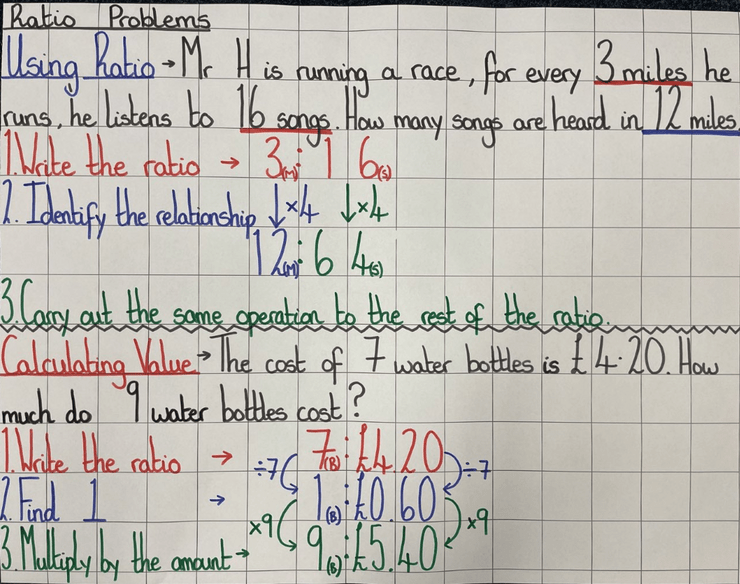 Ratio Problems
Using Ratio → Mr H is running a race, for every 3 miles he
runs, he listens to 16 songs. How many songs are heard in 12 miles.
1. Write the ratio → 3(M) : 1 6(S)
2. Identify the relationship ↓×4 ↓×4
12(M) : 6 4(S)
3. Carry out the same operation to the rest of the ratio.
Calculating Value → The cost of 7 water bottles is £4.20. How
much do 9 water bottles cost?
1. Write the ratio → 7(B) : £4.20
÷7 ÷7
2. Find 1 → 1(B) : £0.60
×9 ×9
3. Multiply by the amount → 9(B) : £5.40